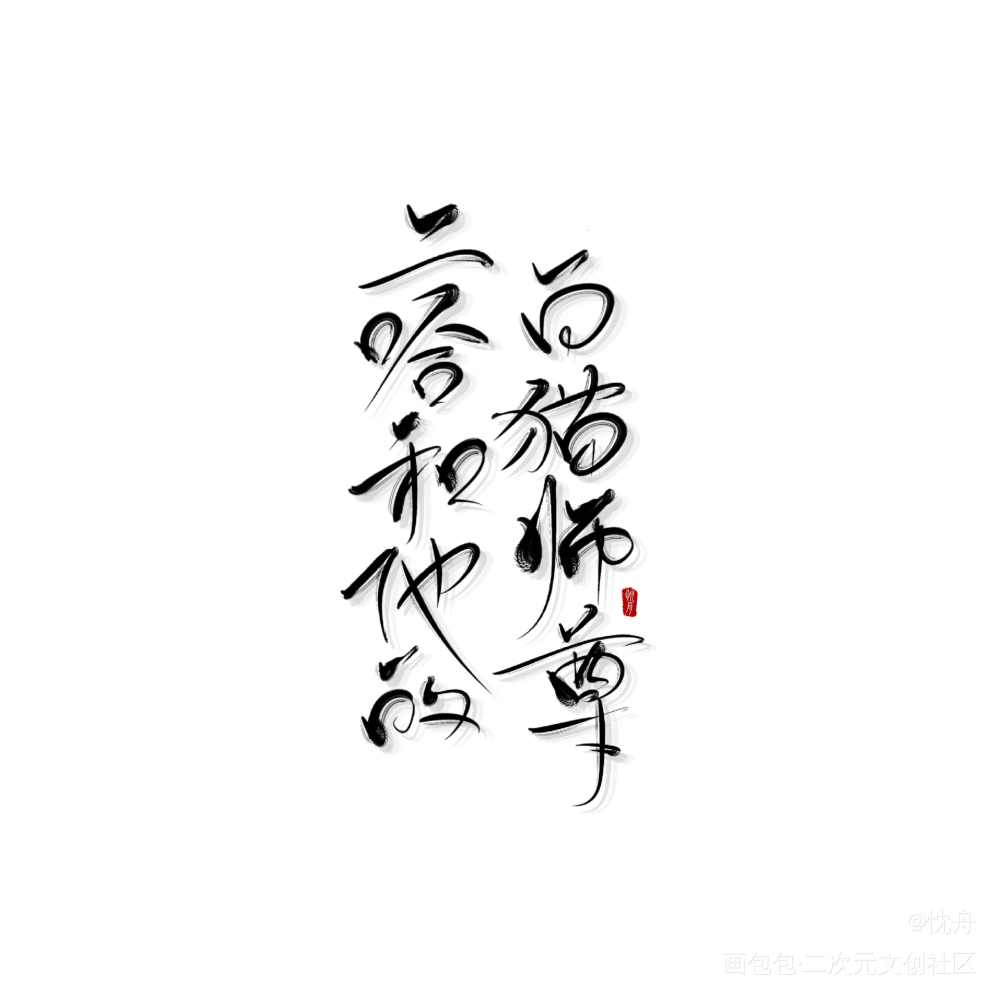 二哈和他的
白猫师尊
忱舟
@忱舟
画包包·二次元文创社区